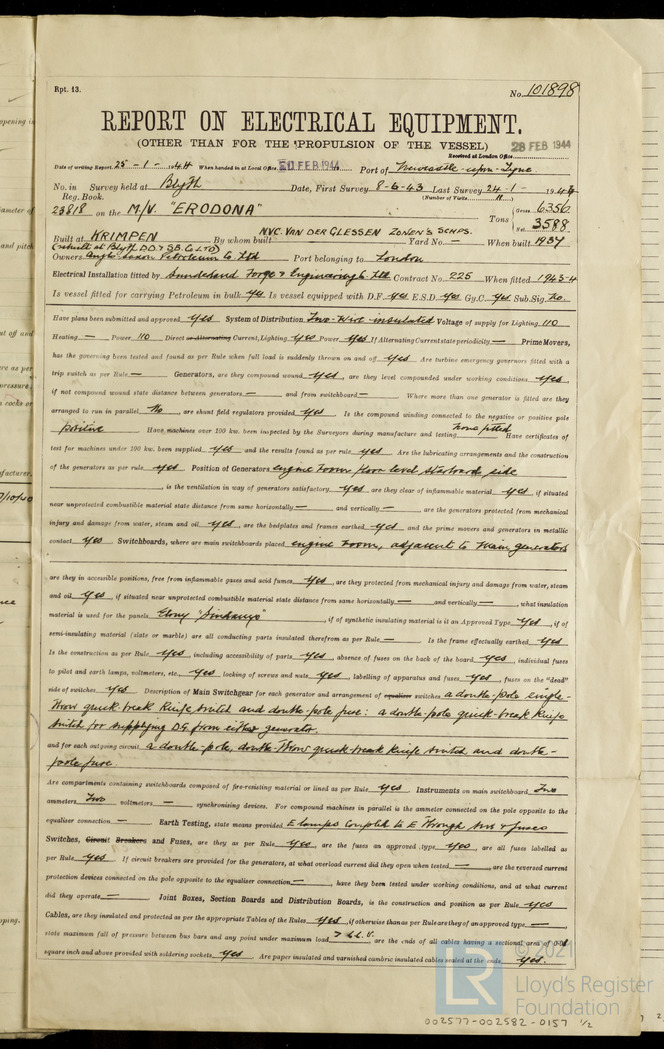 Rpt. 13.
No. 101898
REPORT ON ELECTRICAL EQUIPMENT.
(OTHER THAN FOR THE PROPULSION OF THE VESSEL)
28 FEB 1944
Received at London Office
Date of writing Report 25-1-1944 When handed in at Local Office FEB 1944 Port of Newcastle-upon-Tyne
No. in Survey held at Blyth Date, First Survey 8-6-43 Last Survey 24-1-1944
Reg. Book. (Number of Visits 11)
23818 on the M/V. "ERODONA" Tons Gross 6356 Net 3588
Built at KRIMPEN By whom built N.V.C. VAN DER GIESSEN ZONEN'S SCHPS. Yard No. — When built 1937
(rebuilt at Blyth D.D. & S.B. Co LTD)
Owners Anglo-Saxon Petroleum Co. Ltd Port belonging to London
Electrical Installation fitted by Sunderland Forge & Engineering Co. Ltd Contract No. 225 When fitted 1943-4
Is vessel fitted for carrying Petroleum in bulk Yes Is vessel equipped with D.F. Yes E.S.D. Yes Gy.C. Yes Sub.Sig. No.
Have plans been submitted and approved Yes System of Distribution Two-Wire insulated Voltage of supply for Lighting 110
Heating — Power 110 Direct or Alternating Current, Lighting Yes Power Yes If Alternating Current state periodicity — Prime Movers,
has the governing been tested and found as per Rule when full load is suddenly thrown on and off Yes Are turbine emergency governors fitted with a
trip switch as per Rule — Generators, are they compound wound Yes, are they level compounded under working conditions Yes,
if not compound wound state distance between generators — and from switchboard — Where more than one generator is fitted are they
arranged to run in parallel No, are shunt field regulators provided Yes Is the compound winding connected to the negative or positive pole
Positive Have machines over 100 kw. been inspected by the Surveyors during manufacture and testing None fitted Have certificates of
test for machines under 100 kw. been supplied Yes and the results found as per rule Yes Are the lubricating arrangements and the construction
of the generators as per rule Yes Position of Generators engine room floor level starboard side
, is the ventilation in way of generators satisfactory Yes are they clear of inflammable material Yes, if situated
near unprotected combustible material state distance from same horizontally — and vertically —, are the generators protected from mechanical
injury and damage from water, steam and oil Yes, are the bedplates and frames earthed Yes and the prime movers and generators in metallic
contact Yes Switchboards, where are main switchboards placed engine room, adjacent to Main generators
are they in accessible positions, free from inflammable gases and acid fumes Yes, are they protected from mechanical injury and damage from water, steam
and oil Yes, if situated near unprotected combustible material state distance from same horizontally — and vertically —, what insulation
material is used for the panels Ebony "Sindanyo", if of synthetic insulating material is it an Approved Type Yes, if of
semi-insulating material (slate or marble) are all conducting parts insulated therefrom as per Rule — Is the frame effectually earthed Yes
Is the construction as per Rule Yes, including accessibility of parts Yes, absence of fuses on the back of the board Yes, individual fuses
to pilot and earth lamps, voltmeters, etc., Yes locking of screws and nuts Yes, labelling of apparatus and fuses Yes, fuses on the "dead"
side of switches Yes Description of Main Switchgear for each generator and arrangement of equaliser switches a double-pole single-
throw quick-break knife switch and double-pole fuse: a double-pole quick-break knife
switch for supplying DG from either generator.
and for each outgoing circuit a double-pole, double-throw quick-break knife switch and double-
pole fuse.
Are compartments containing switchboards composed of fire-resisting material or lined as per Rule Yes Instruments on main switchboard Two
ammeters Two voltmeters — synchronising devices. For compound machines in parallel is the ammeter connected on the pole opposite to the
equaliser connection — Earth Testing, state means provided E lamps Coupled to E through sws & fuses
Switches, Circuit Breakers and Fuses, are they as per Rule Yes, are the fuses an approved type Yes, are all fuses labelled as
per Rule Yes If circuit breakers are provided for the generators, at what overload current did they open when tested —, are the reversed current
protection devices connected on the pole opposite to the equaliser connection —, have they been tested under working conditions, and at what current
did they operate — Joint Boxes, Section Boards and Distribution Boards, is the construction and position as per Rule Yes
Cables, are they insulated and protected as per the appropriate Tables of the Rules Yes, if otherwise than as per Rule are they of an approved type —
state maximum fall of pressure between bus bars and any point under maximum load, are the ends of all cables having a sectional area of 0.04
square inch and above provided with soldering sockets Yes Are paper insulated and varnished cambric insulated cables sealed at the ends Yes.
© 2021
LR
Lloyd's Register
Foundation
002577-002582-0157 1/2